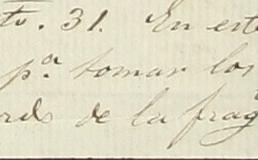 31. En est
pª tomar los
de la frag